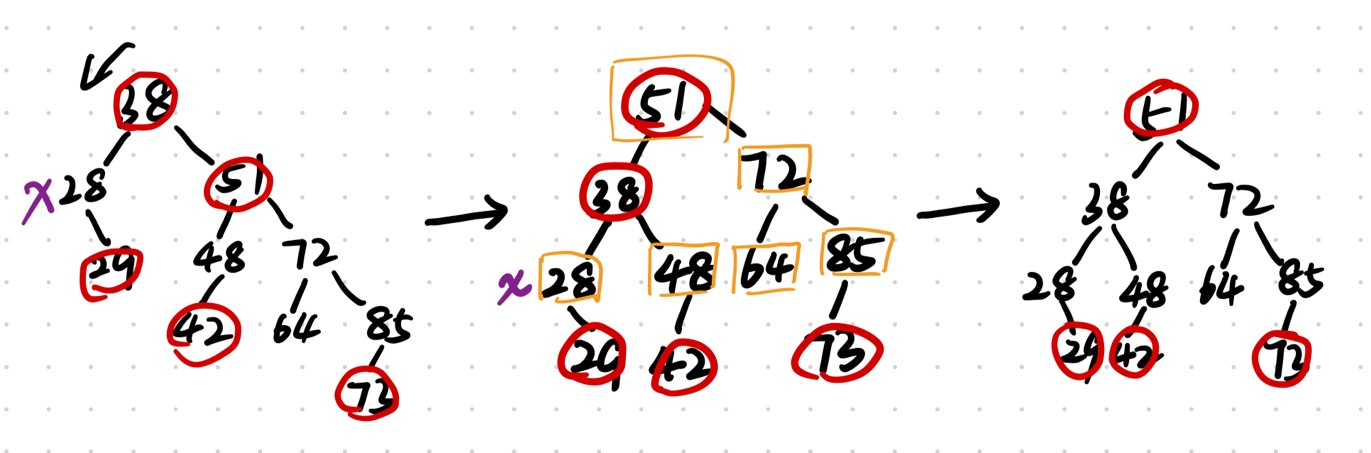 38
x 28 51
29 48 72
42 64 85
73
51
38 72
x 28 48 64 85
29 42 73
51
38 72
28 48 64 85
29 42 73